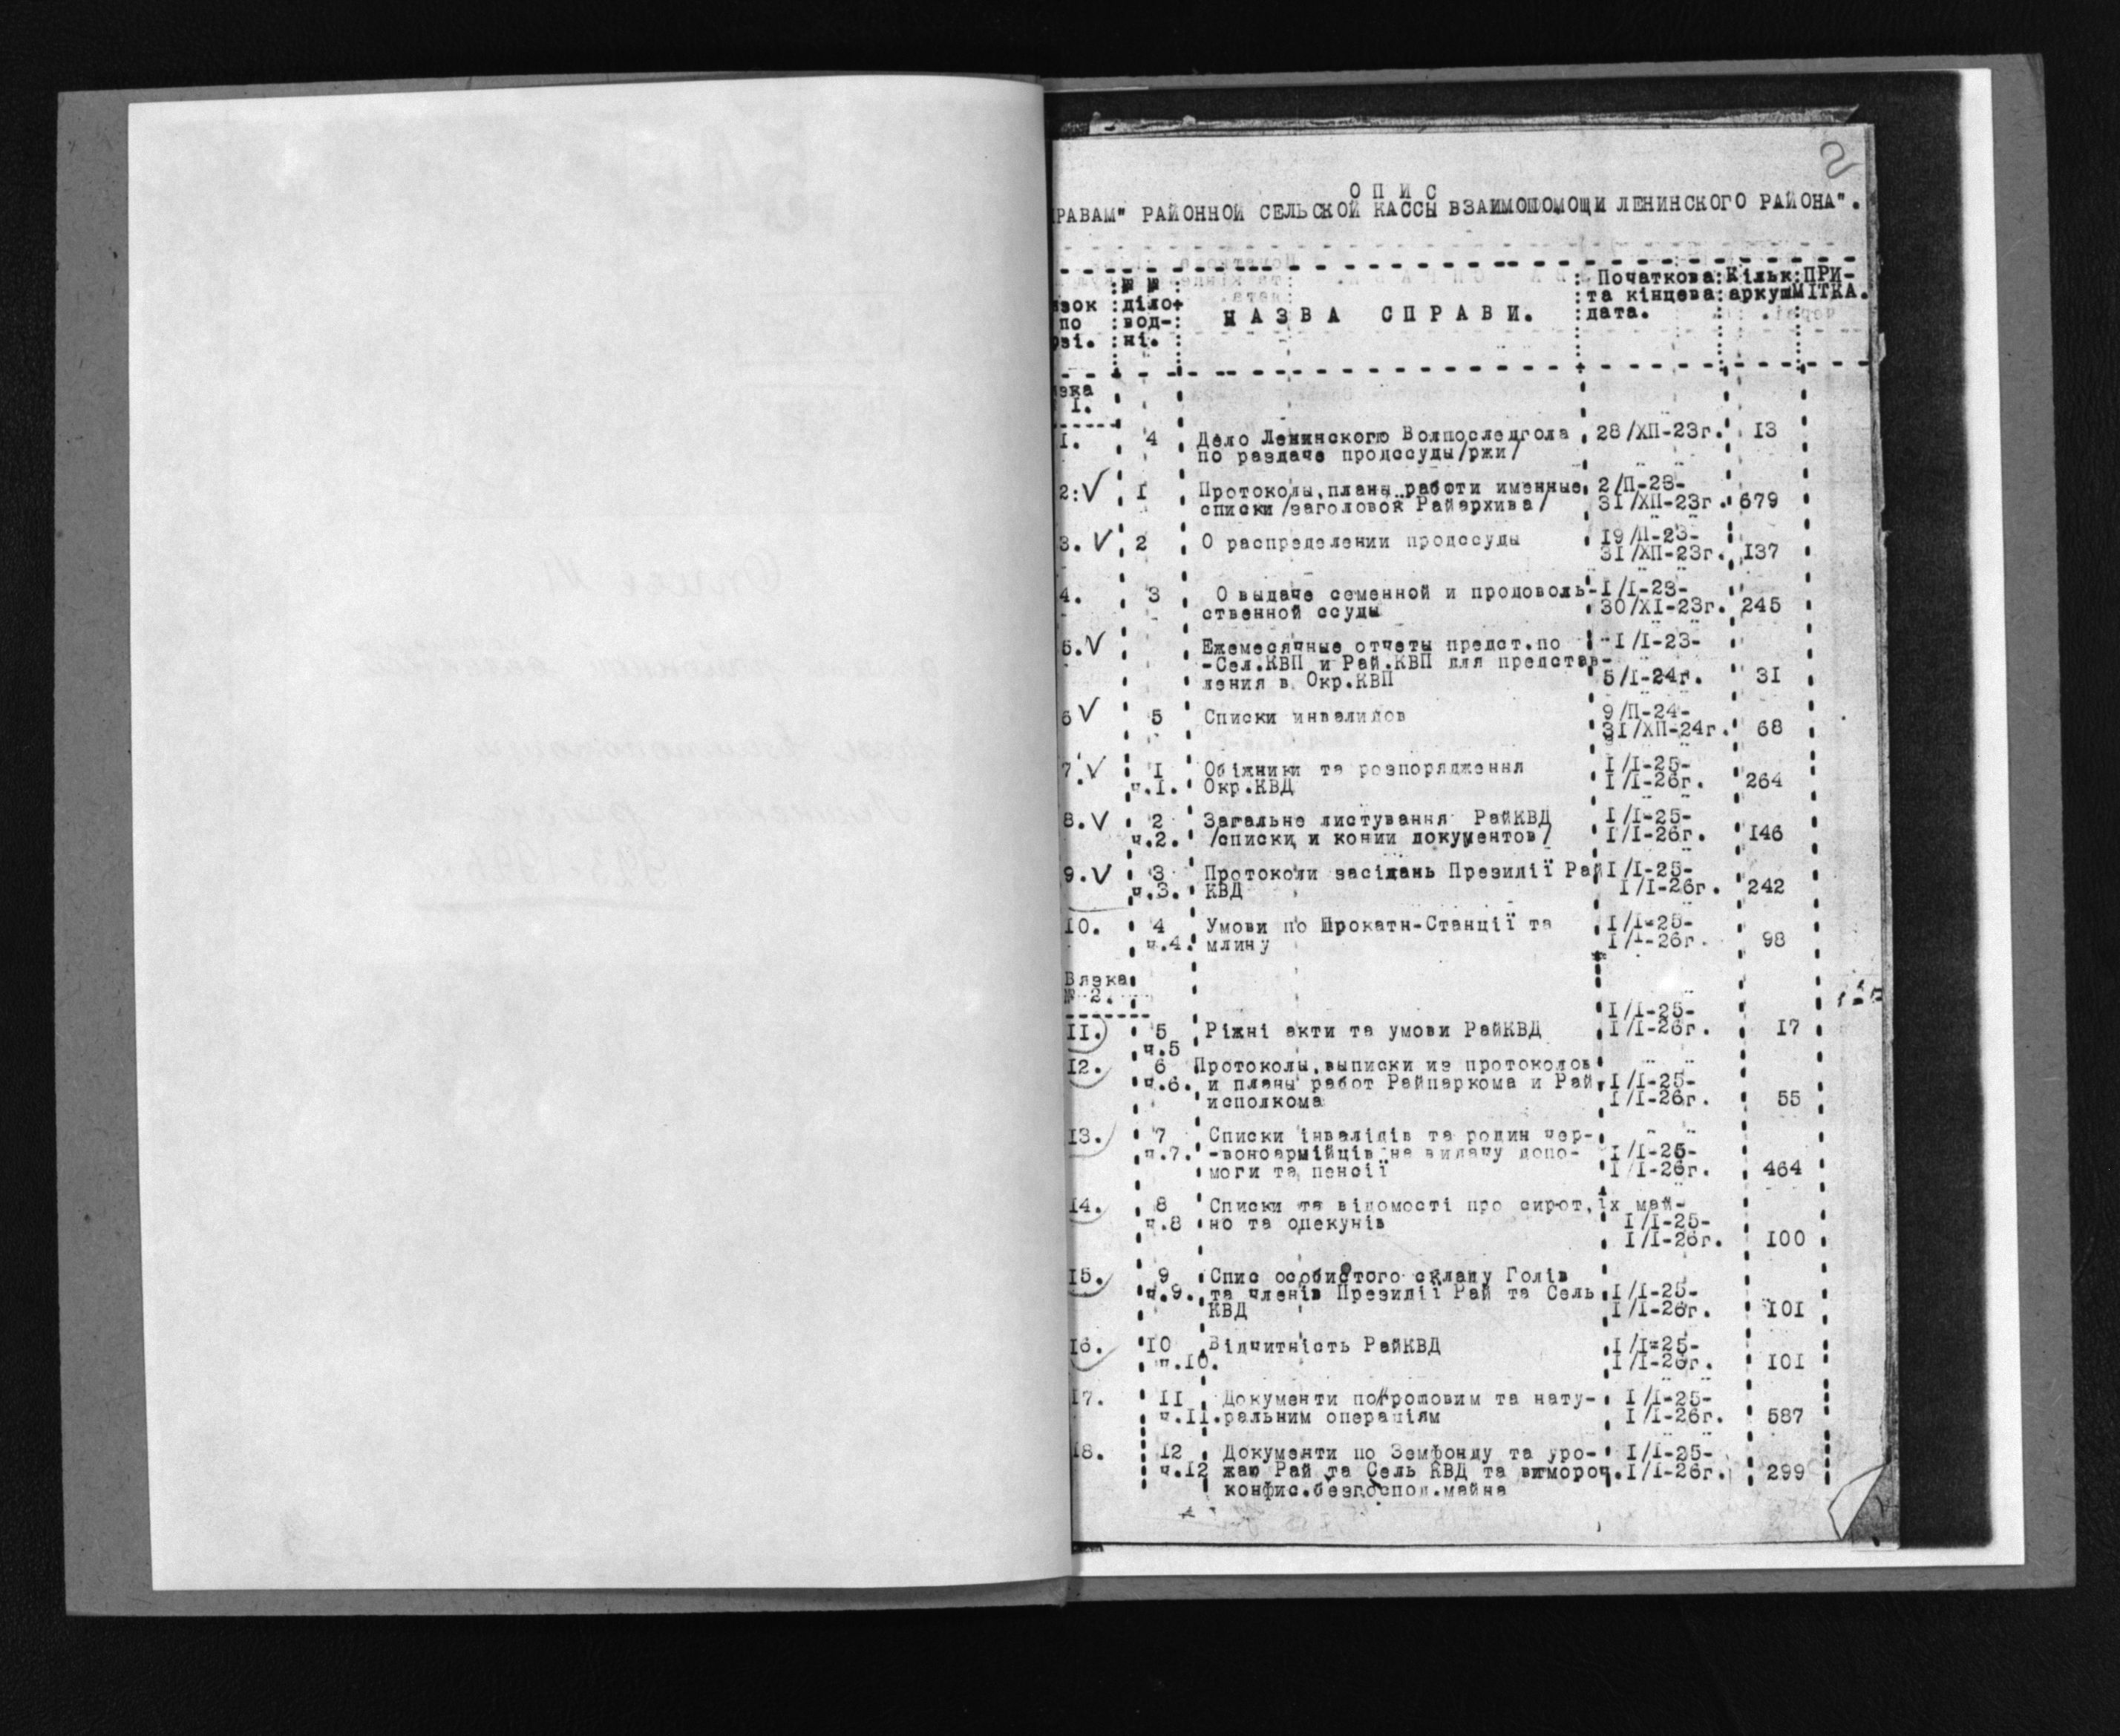 О П И С
РАВАМ" РАЙОННОЙ СЕЛЬСКОЙ КАССЫ ВЗАИМОПОМОЩИ ЛЕНИНСКОГО РАЙОНА".
№ № діло- вод- ні.
НАЗВА СПРАВИ.
Початкова та кінцева дата.
Кільк. аркуш.
ПРИ- МІТКА.
I.
I. 4 Дело Ленинского Волпоследгола 28/ХП-23г. I3
по раздаче продссуды/ржи/
2: V I Протоколы, планы работи именные 2/П-23-
списки /заголовок Райархива/ 3I/ХП-23г. 679
3. V 2 О распределении продссуды I9/П-23-
3I/ХП-23г. I37
4. 3 О выдаче семенной и продоволь- I/I-23-
ственной ссуды 30/XI-23г. 245
5. V Ежемесячные отчеты предст.по I/I-23-
-Сел.КВП и Рай.КВП для представ-
ления в Окр.КВП 5/I-24г. 3I
6 V 5 Списки инвалидов 9/П-24-
3I/ХП-24г. 68
7. V I Обіжники та розпорядження I/I-25-
ч.I. Окр.КВД I/I-26г. 264
8. V 2 Загальне листування РайКВД I/I-25-
ч.2. /списки и копии документов/ I/I-26г. I46
9. V 3 Протоколи засідань Президії Рай I/I-25-
ч.3. КВД I/I-26г. 242
I0. 4 Умови по Прокатн-Станції та I/I-25-
ч.4. млину I/I-26г. 98
Вязка
№ 2.
I/I-25-
II. 5 Ріжні акти та умови РайКВД I/I-26г. I7
ч.5
I2. 6 Протоколы, выписки из протоколов
ч.6. и планы работ Райпаркома и Рай I/I-25-
исполкома I/I-26г. 55
I3. 7 Списки інвалідів та родин чер-
ч.7. -воноармійців на видачу допо- I/I-25-
моги та пенсії I/I-26г. 464
I4. 8 Списки та відомості про сирот, їх май-
ч.8 но та опекунів I/I-25-
I/I-26г. I00
I5. 9 Спис особистого складу Голів
ч.9. та членів Президії Рай та Сель I/I-25-
КВД I/I-26г. I0I
I6. I0 Відчитність РайКВД I/I-25-
ч.I0. I/I-26г. I0I
I7. II Документи по грошовим та нату- I/I-25-
ч.II. ральним операціям I/I-26г. 587
I8. I2 Документи по Земфонду та уро- I/I-25-
ч.I2 жаю Рай та Сель КВД та вимороч. I/I-26г. 299
конфис.безгоспод.майна